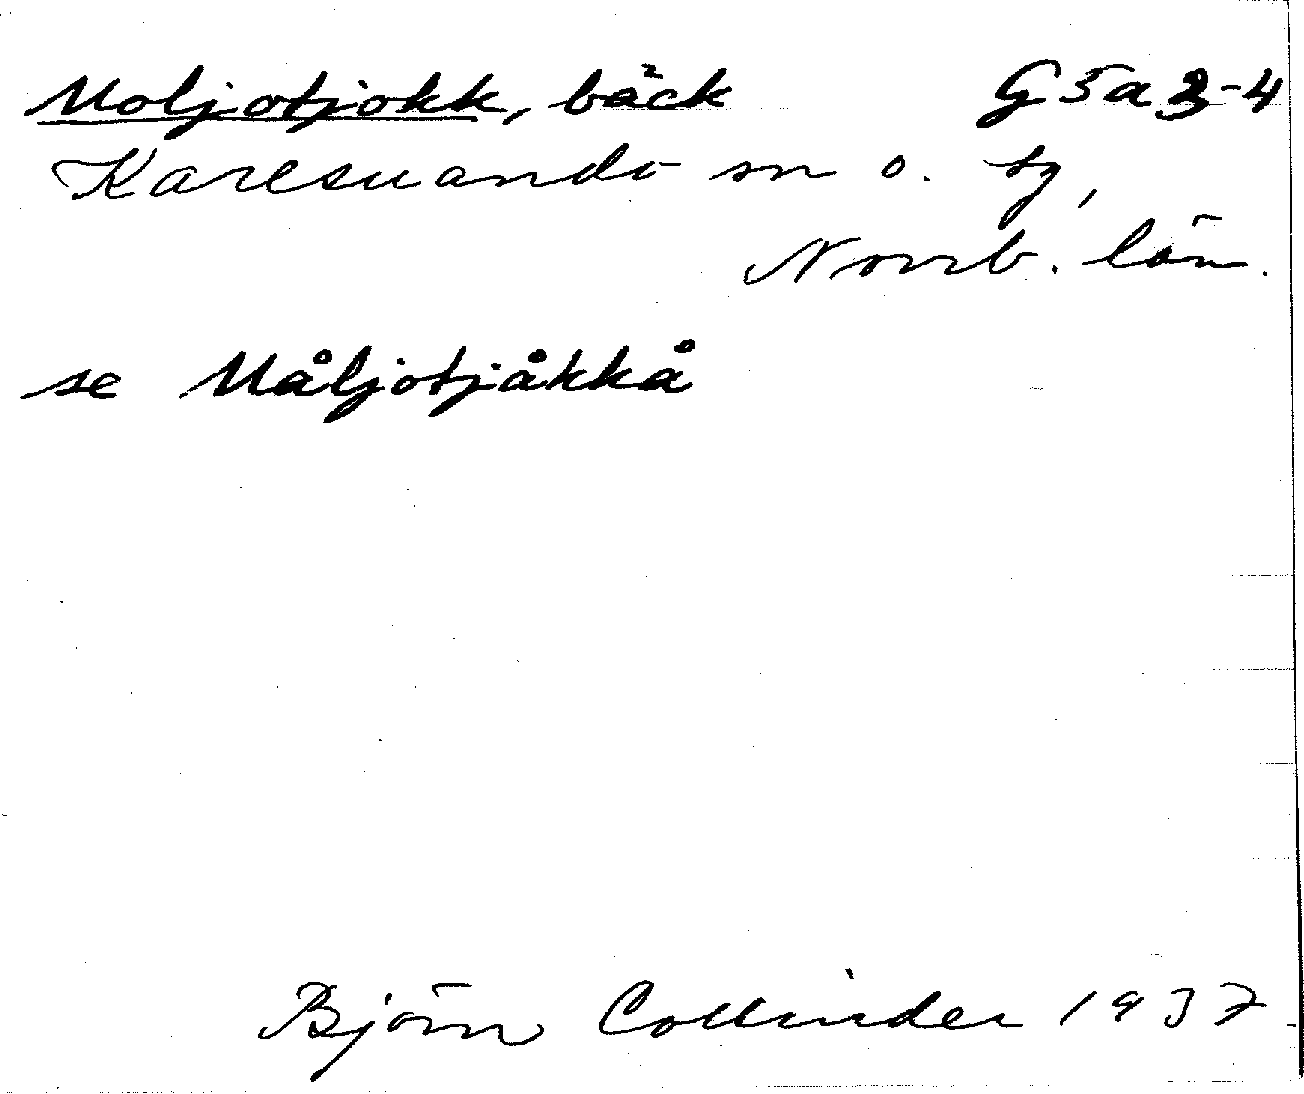 Moljotjokk, bäck G5a3-4
Karesuando sn o. tg,
Norrb. län.
se Måljotjåkkå
Björn Collinder 1937